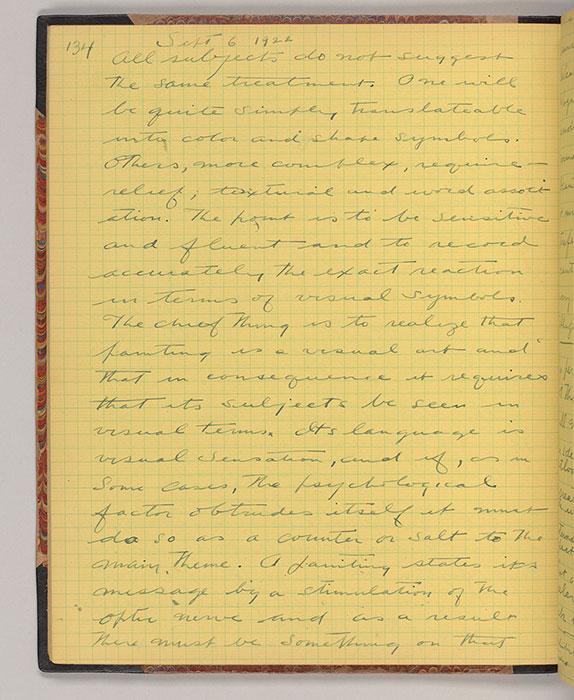 134 Sept 6 1922
All subjects do not suggest
the same treatment. One will
be quite simply translateable
into color and shape symbols.
Others, more complex, require
relief, textural and word associ
ation. The point is to be sensitive
and fluent and to record
accurately the exact reaction
in terms of visual symbols.
The chief thing is to realize that
painting is a visual art and
that in consequence it requires
that its subjects be seen in
visual terms. Its language is
visual sensation, and if, as in
some cases, the psychological
factor obtrudes itself it must
do so as a counter or salt to the
main theme. A painting states its
message by a stimulation of the
optic nerve and as a result
there must be something on that